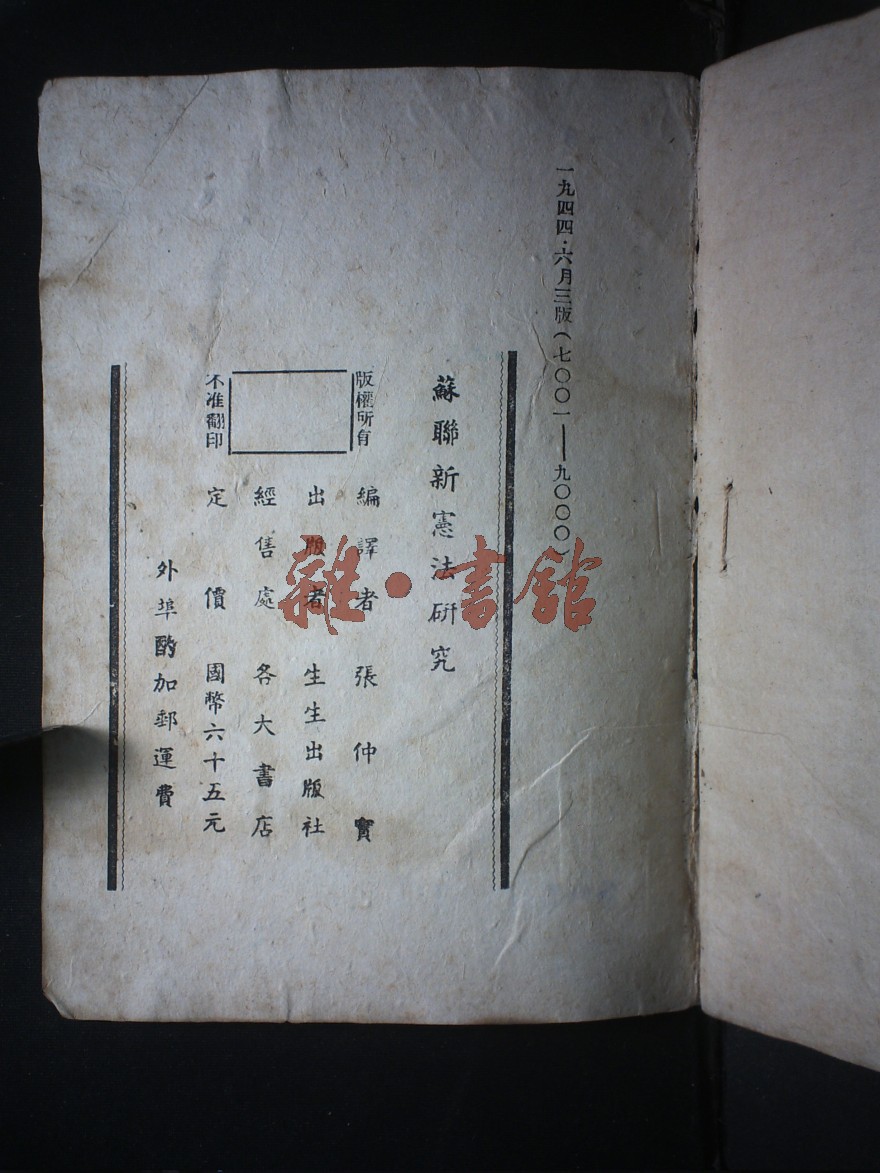 一九四四·六月三版(七〇〇一——九〇〇〇)
蘇聯新憲法研究
版權所有
不准翻印
編譯者 張仲實
出版者 生生出版社
經售處 各大書店
定價 國幣六十五元
外埠酌加郵運費
雜·書館